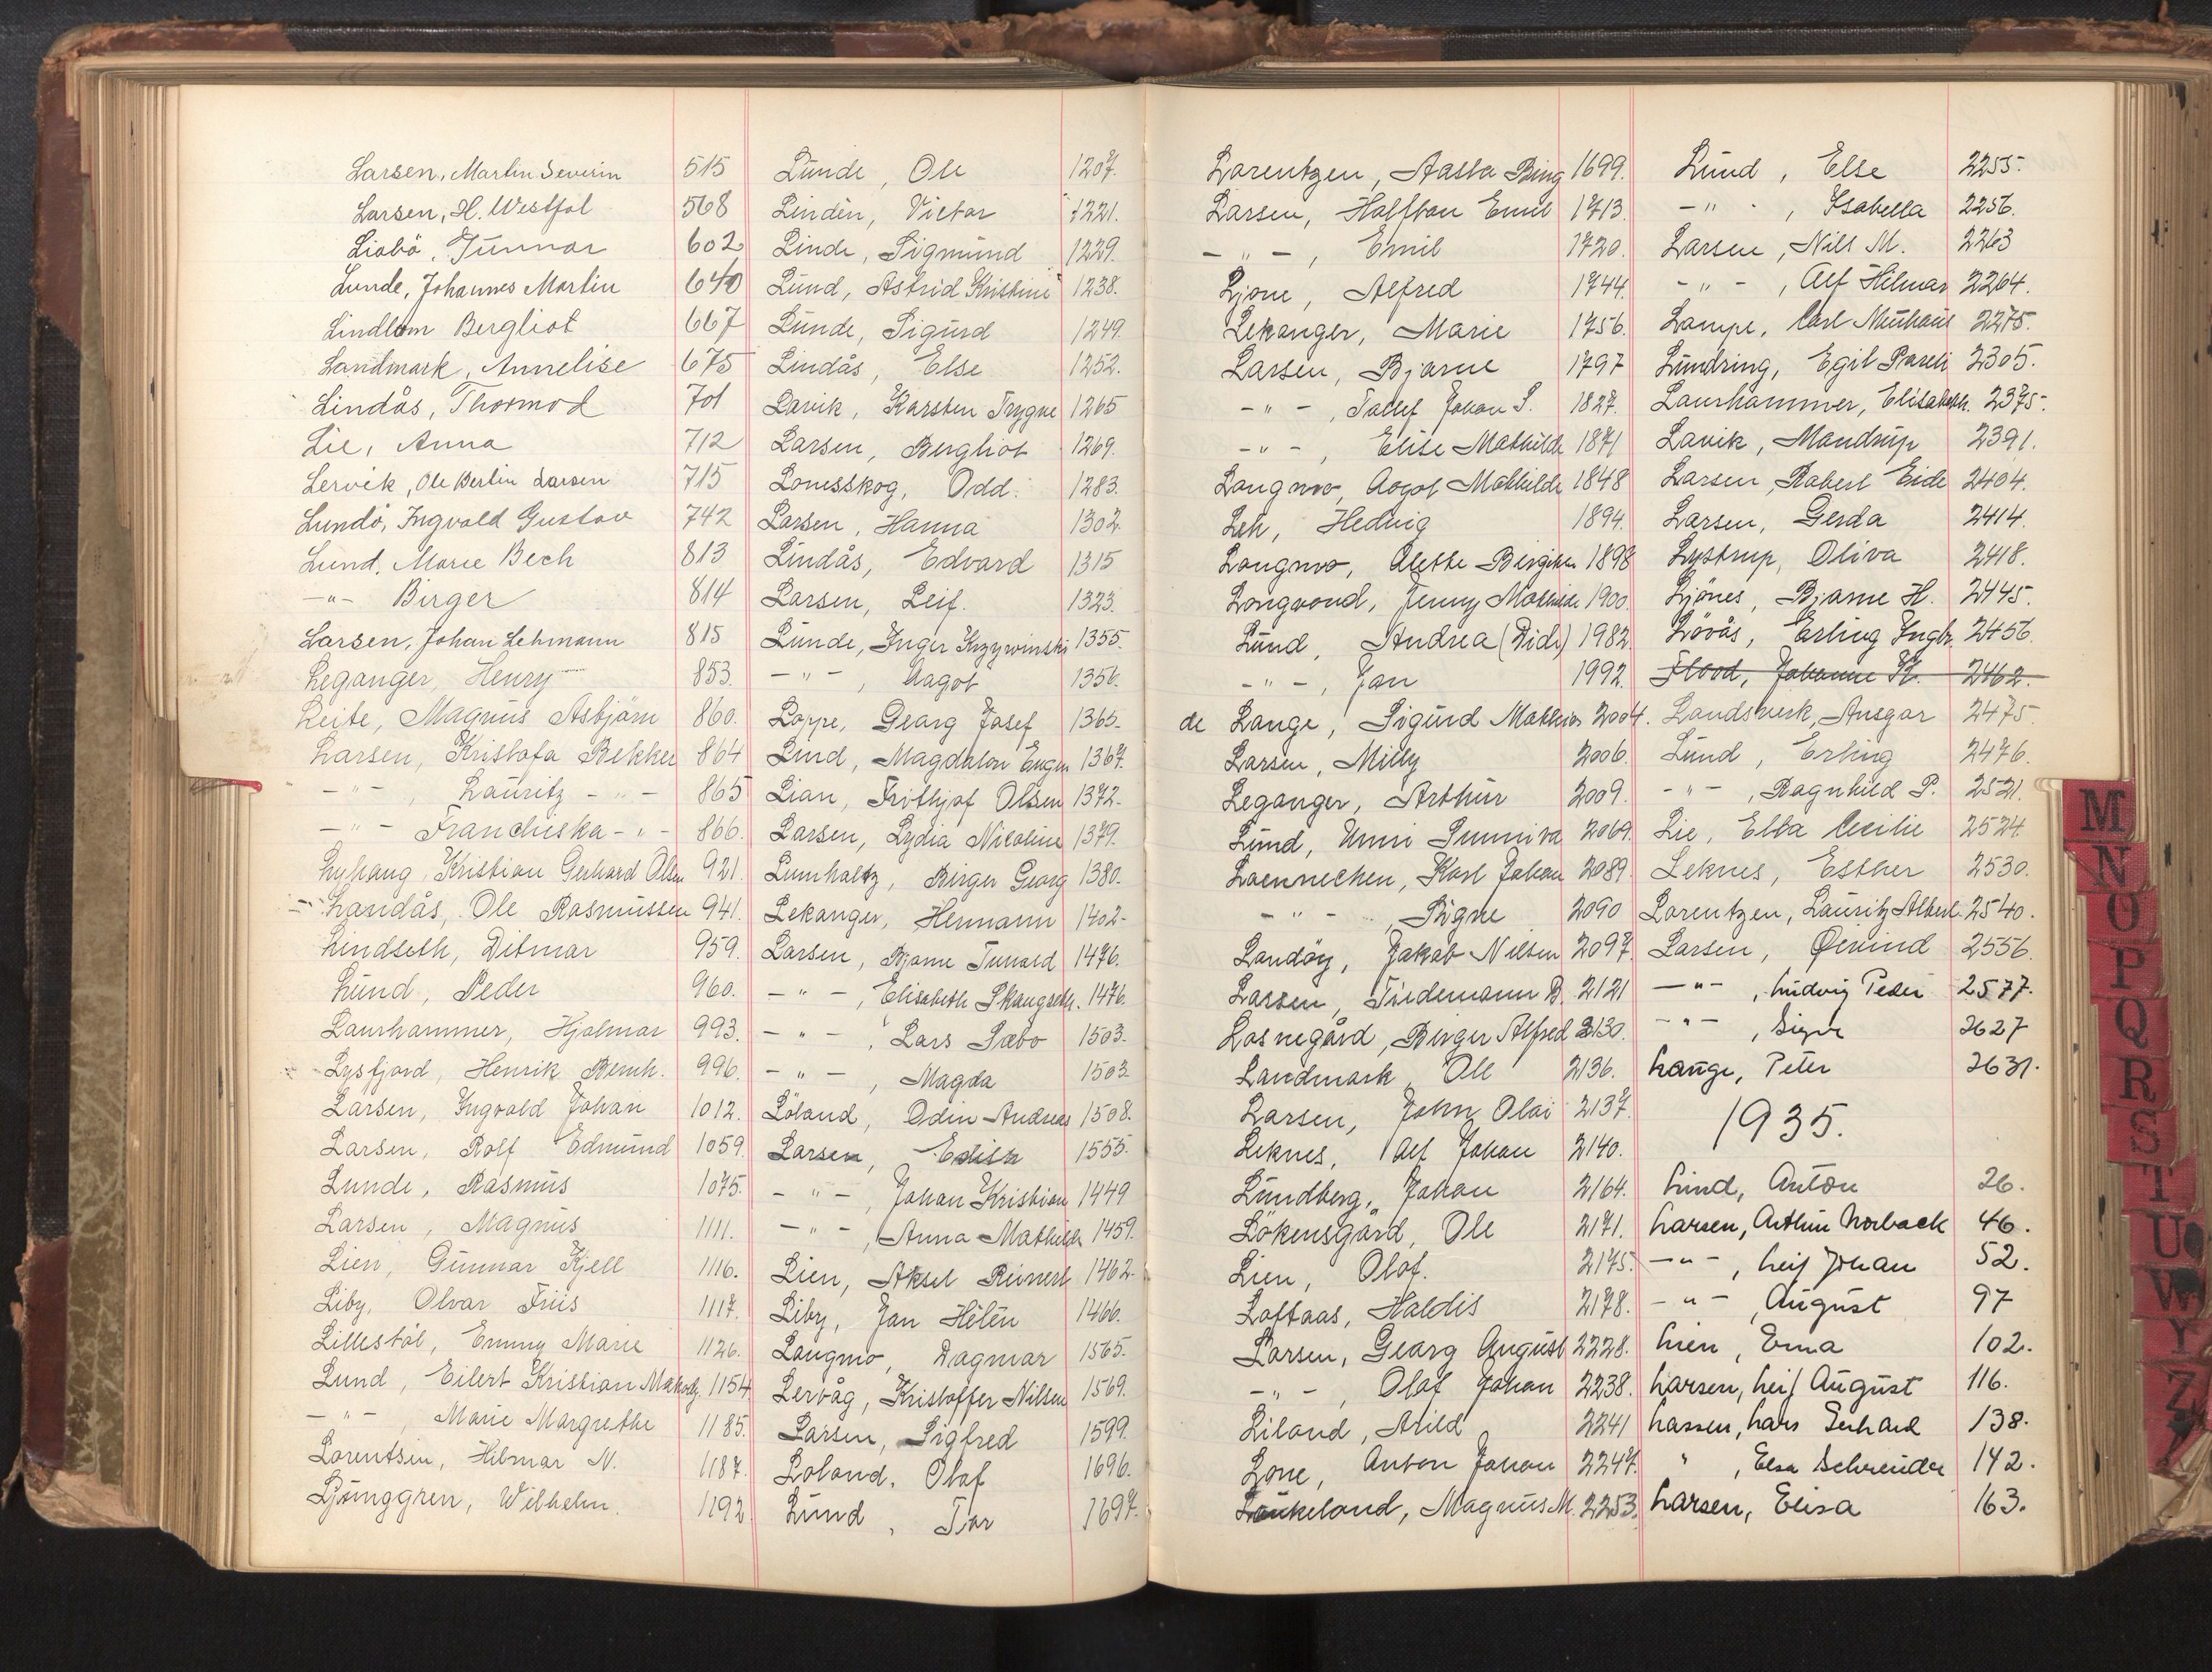 Larsen, Martin Severin 515
Larsen, H. Westfal 568
Liabö, Gunnar 602
Lunde, Johannes Martin 640
Lindlom Bergliot 667
Landmark, Annelise 675
Lindås, Thormod 701
Lie, Anna 712
Lervik, Ole Berlin Larsen 715
Lundö, Ingvald Gustav 742
Lund, Marie Bech 813
-"- Birger 814
Larsen, Johan Lehmann 815
Leganger, Henry 853.
Leite, Magnus Asbjörn 860.
Larsen, Kristofa Bekker 864
-"-, Lauritz -"- 865
-"- Franciska -"- 866.
Lyhaug, Kristian Gerhard Olsen 921.
Landås, Ole Rasmussen 941.
Lindseth, Ditmar 959.
Lund, Peder 960.
Laurhammer, Hjalmar 993.
Lysfjord, Henrik Bernh. 996.
Larsen, Ingvald Johan 1012.
Larsen, Rolf Edmund 1059.
Lunde, Rasmus 1075.
Larsen, Magnus 1111.
Lien, Gunnar Kjell 1116.
Liby, Olvar Friis 1117.
Lillestöl, Emmy Marie 1126.
Lund, Eilert Kristian 1154
-"-, Marie Margrethe 1185.
Lorentsen, Hilmar N. 1187.
Ljunggren, Wilhelm. 1192
Lunde, Ole 1207.
Lindén, Victor 1221.
Linde, Sigmund 1229.
Lund, Astrid Kristine 1238.
Lunde, Sigurd 1249.
Lindås, Else 1252.
Lavik, Karsten Trygve 1265
Larsen, Bergliot 1269.
Lonesskog, Odd. 1283.
Larsen, Hanna 1302.
Lindås, Edvard 1315
Larsen, Leif. 1323.
Lunde, Inger Krzywinski 1355.
-"-, Aagot 1356.
Loppe, Georg Josef 1365.
Lind, Magdalon Eugen 1367.
Lian, Frithjof Olsen 1372.
Larsen, Lydia Nicoline 1379.
Lumholtz, Birger Georg 1380.
Lekanger, Hermann 1402.
Larsen, Bjarne 1476.
-"-, Elisabeth 1476.
-"-, Lars Sæbo 1503.
-"-, Magda 1503
Löland, Odin Andreas 1508.
Larsen, Edith 1555.
-"-, Johan Kristian 1449
-"-, Anna Mathilde 1459.
Lien, Aksel Reinert 1462.
Liby, Jan Hélén 1466.
Langmo, Dagmar 1565.
Lervåg, Kristoffer Nilsen 1569.
Larsen, Sigfred 1599.
Loland, Olaf 1696.
Lund, Tor 1697.
Lorentzen, Aasta Bing 1699.
Larsen, Halfdan Emil 1713.
-"-, Emil 1720.
Ljone, Alfred 1744.
Lekanger, Marie 1756.
Larsen, Bjarne 1797
-"-, Johan S. 1827.
-"-, Elise Mathilde 1871
Langmo, Aagot Mathilde 1848
Leh, Hedvig 1894.
Langmo, Alette Birgitte 1898
Longvond, Jenny Mathilde 1900.
Lund, Andrea (Didi) 1982
-"-, Jan 1992.
de Lange, Sigurd Mathias 2004.
Larsen, Milly 2006.
Leganger, Arthur 2009.
Lund, Unni Sunniva 2069.
Loennechen, Karl Johan 2089.
-"-, Signe 2090
Landöy, Jakob Nilsen 2097.
Lassen, Tiedemann B. 2121
Losnegård, Birger Alfred 2130.
Landmark, Ole 2136.
Larsen, John Olai 2137.
Leknes, Alf Johan 2140.
Lundberg, Johan 2164.
Lökensgård, Ole 2171.
Lien, Olaf. 2175.
Loftaas, Haldis 2178.
Larsen, Georg August 2228.
-"-, Olaf Johan 2238.
Liland, Arild 2241
Lone, Anton Johan 2247.
Laukeland, Magnus M. 2253.
Lund, Else 2255.
-"-, Isabella 2256.
Larsen, Nils M. 2263
-"-, Alf Hilmar 2264.
Lampe, Carl Neuhaus 2275.
Lundring, Egil Pareli 2305.
Laurhammer, Elisabeth. 2375.
Lavik, Mandrup 2391.
Larsen, Robert Eide 2404.
Larsen, Gerda 2414.
Lystrup, Oliva 2418.
Ljönes, Bjarne H. 2445.
Lövås, Erling Ingbr. 2456.
Flood, Johanne St. 2462.
Landsverk, Ansgar 2475.
Lund, Erling 2476.
-"-, Ragnhild P. 2521.
Lie, Ebba Cecilie 2524.
Leknes, Esther 2530.
Lorentzen, Lauritz Albert 2540.
Larsen, Øivind 2556.
-"-, Ludvig Peder 2577.
-"-, Signe 2627
Lange, Peter 2631.
1935.
Lind, Anton 26.
Larsen, Arthur Norback 46.
-"-, Leif Johan 52.
-"-, August 97
Lien, Erna 102.
Larsen, Leif August 116.
Lassen, Lars Gerhard 138.
", Elsa Schreuder 142.
Larsen, Elisa 163.
M
N
O
P
Q
R
S
T
U
W
Y
Z